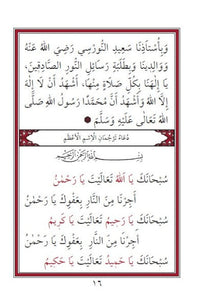 وَبِأُسْتَاذِنَا سَعِيدِ النُّورْسِي رَضِيَ اللّٰهُ عَنْهُ
وَوَالِدِينَا وَبِطَلَبَةِ رَسَائِلِ النُّورِ الصَّادِقِينَ،
يَا إِلٰهَنَا بِكُلِّ صَلَاةٍ مِنْهَا، أَشْهَدُ أَنْ لَا إِلٰهَ
إِلَّا اللّٰهُ وَأَشْهَدُ أَنَّ مُحَمَّدًا رَسُولُ اللّٰهِ صَلَّى
اللّٰهُ تَعَالَى عَلَيْهِ وَسَلَّمَ
دُعَاءُ تَرْجُمَانِ الْاِسْمِ الْأَعْظَمِ
بِسْمِ اللّٰهِ الرَّحْمٰنِ الرَّحِيمِ
سُبْحَانَكَ يَا اَللّٰهُ تَعَالَيْتَ يَا رَحْمٰنُ
أَجِرْنَا مِنَ النَّارِ بِعَفْوِكَ يَا رَحْمٰنُ
سُبْحَانَكَ يَا رَحِيمُ تَعَالَيْتَ يَا كَرِيمُ
أَجِرْنَا مِنَ النَّارِ بِعَفْوِكَ يَا رَحْمٰنُ
سُبْحَانَكَ يَا حَمِيدُ تَعَالَيْتَ يَا حَكِيمُ
١٦